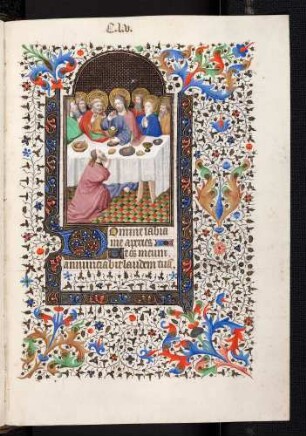 C.l.v.
Domine labia
mea aperies
et os meum
annunciabit laudem tuã.